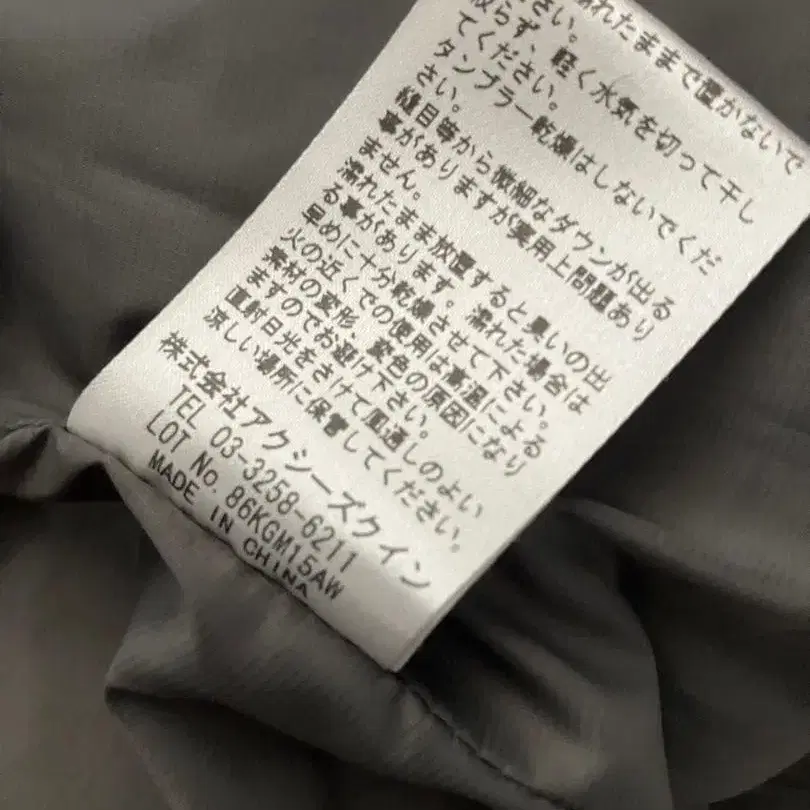 さい。濡れたままで置かないで
絞らず、軽く水気を切って干し
てください。
タンブラー乾燥はしないでくだ
さい。
縫目等から微細なダウンが出る
事がありますが実用上問題あり
ません。
濡れたまま放置すると臭いの出
る事があります。濡れた場合は
早めに十分乾燥させて下さい。
火の近くでの使用は高温による
素材の変形、変色の原因になり
ますのでお避け下さい。
直射日光をさけて風通しのよい
涼しい場所に保管してください。
株式会社アクシーズクイン
TEL 03-3258-6211
LOT No. 86KGM15AW
MADE IN CHINA